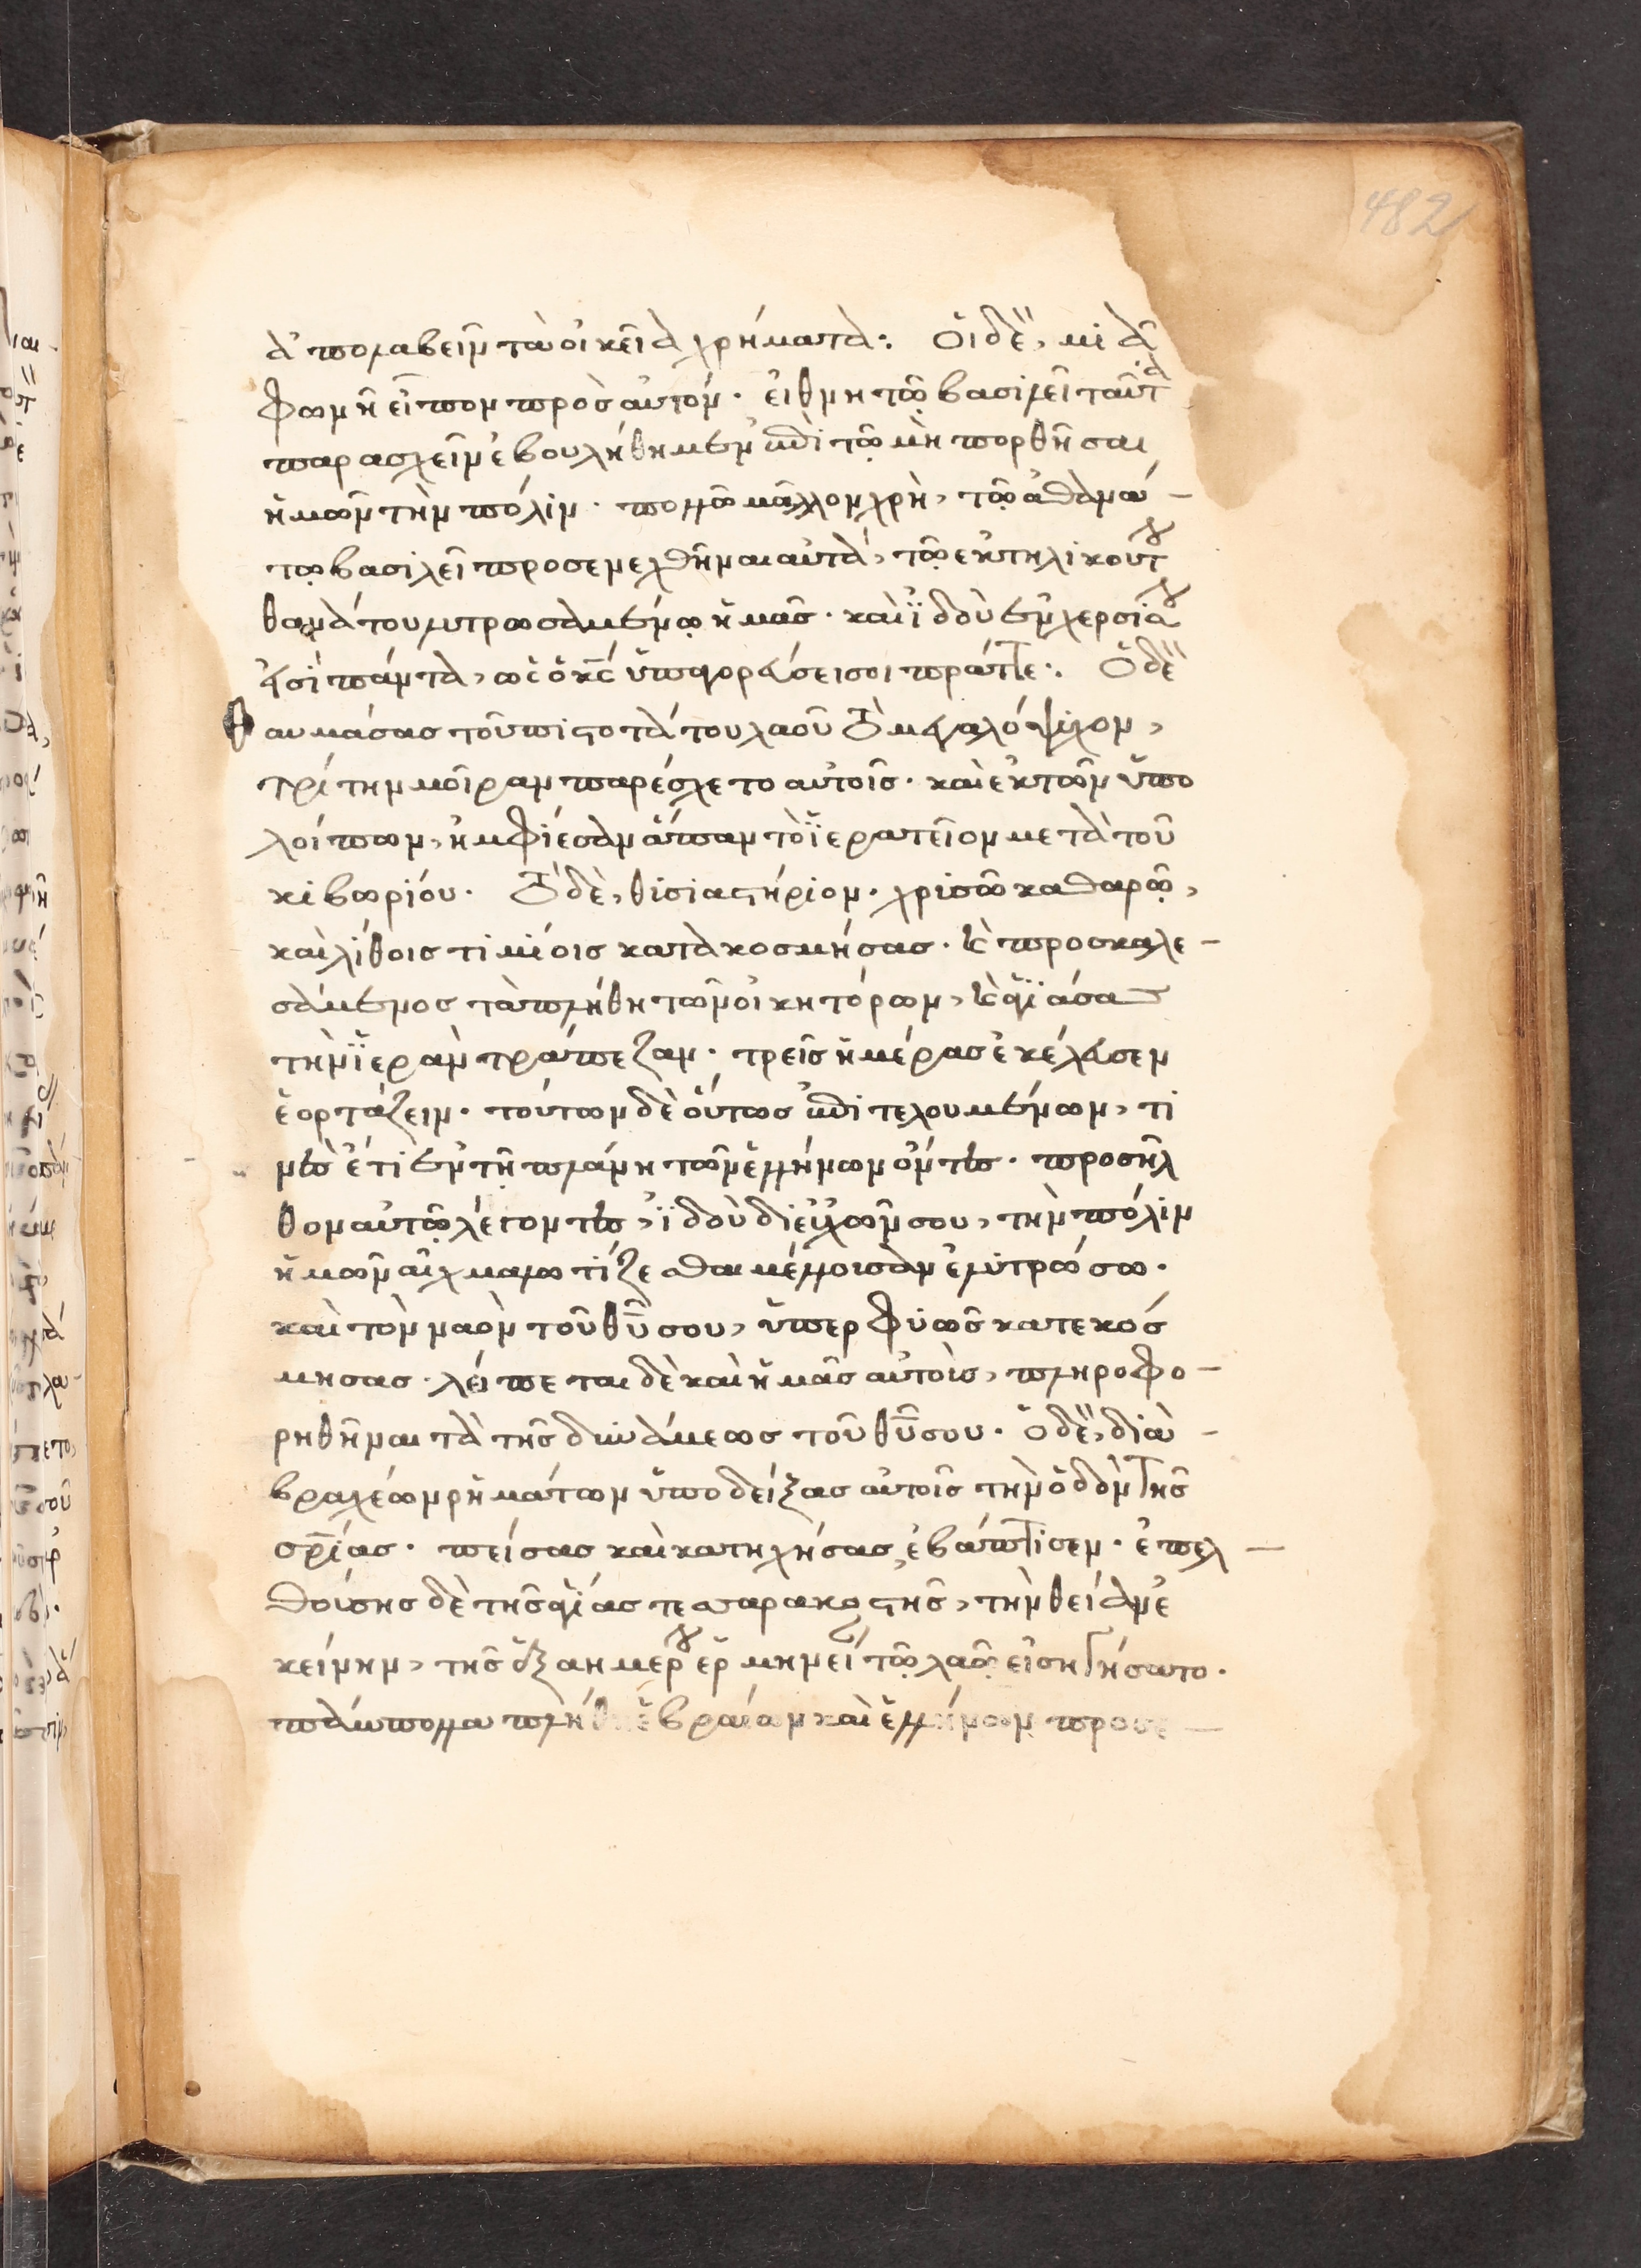 482
ἀπολαβεῖν τὰ οἰκεῖα χρήματα: Οἱ δὲ, μιᾶ
φωνῆ εἶπον προς αὐτόν· εἰ θνητῶ βασιλεῖ ταῦτα
παρασχεῖν ἐβουλήθημεν ἐπὶ τῶ μὴ πορθῆσαι
ἡμῶν τὴν πόλιν· πολλῶ μᾶλλον χρὴ, τῶ ἀθανά-
τω βασιλεῖ προσενεχθῆναι αὐτὰ, τῶ ἐκ τηλικούτου
θανάτου λυτρωσαμένω ἡμᾶς· καὶ ἰδοὺ ἐν χερσί σου
εἰσὶ πάντα, ὡς ὁ κς ὑπαγορεύσει σοι πράττε: Ὁ δὲ
θαυμάσας τοῦ πιστοτάτου λαοῦ τὸ μεγαλόψυχον,
τρίτην μοῖραν παρέσχετο αὐτοῖς· καὶ ἐκ τῶν ὑπο
λοίπων, ἠμφίεσαν ἅπαν τὸ ἱερατεῖον μετὰ τοῦ
κιβωρίου· Τὸ δὲ, θισιαστήριον· χρισῶ καθαρῶ,
καὶ λίθοις τιμίοις κατακοσμήσας· καὶ προσκαλε-
σάμενος τὰ πλήθη τῶν οἰκητόρων, καὶ ἁγιάσας
τὴν ἱερὰν τράπεζαν· τρεῖς ἡμέρας ἐκέλευσεν
ἑορτάζειν· τούτων δὲ οὕτως ἐπιτελουμένων, τι
νὲς ἔτι ἐν τῆ πλάνη τῶν ἑλλήνων ὄντες· προσῆλ
θον αὐτῶ λέγοντες, ἰδοὺ δι εὐχῶν σου, τὴν πόλιν
ἡμῶν αἰχμαλωτίζεσθαι μέλλουσαν ἐλυτρώσω·
καὶ τὸν ναὸν τοῦ θυ σου, ὑπερφυῶς κατεκόσ
μησας· λείπεται δὲ καὶ ἡμᾶς αὐτοὶς, πληροφο-
ρηθῆναι τὰ τῆς δυνάμεως τοῦ θυ σου· ὁ δὲ, διὰ
βραχέων ρημάτων ὑποδείξας αὐτοῖς τὴν ὁδὸν τῆς
σρίας· πείσας καὶ κατηχήσας, ἐβάπτισεν· ἐπελ-
θούσης δὲ τῆς ἁγίας τεσσαρακοστῆς, τὴν θείαν ἐ
κείνην, τῆς ἑξαημέρου ἑρμηνείαν τῶ λαῶ εἰσηγήσατο·
πάλιν πολλὰ πλήθη ἑβραίων καὶ ἑλλήνων